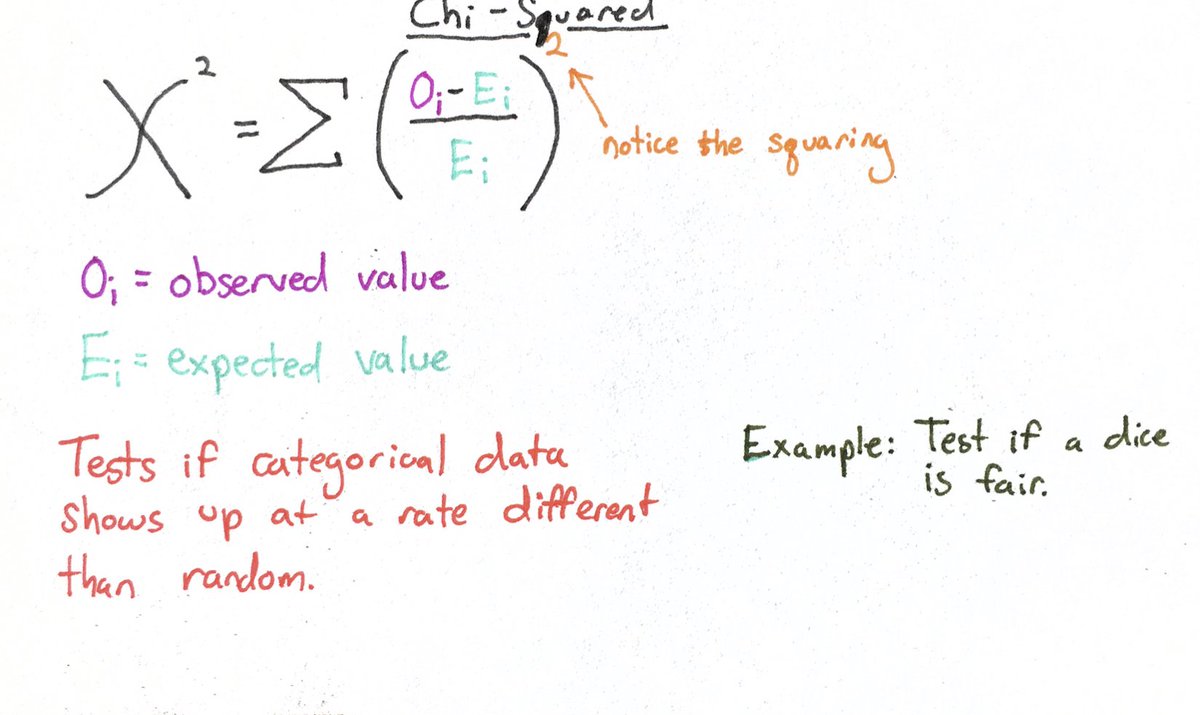 Chi-Squared
X² = Σ ((Oᵢ - Eᵢ) / Eᵢ)²
notice the squaring
Oᵢ = observed value
Eᵢ = expected value
Tests if categorical data
shows up at a rate different
than random.
Example: Test if a dice
is fair.